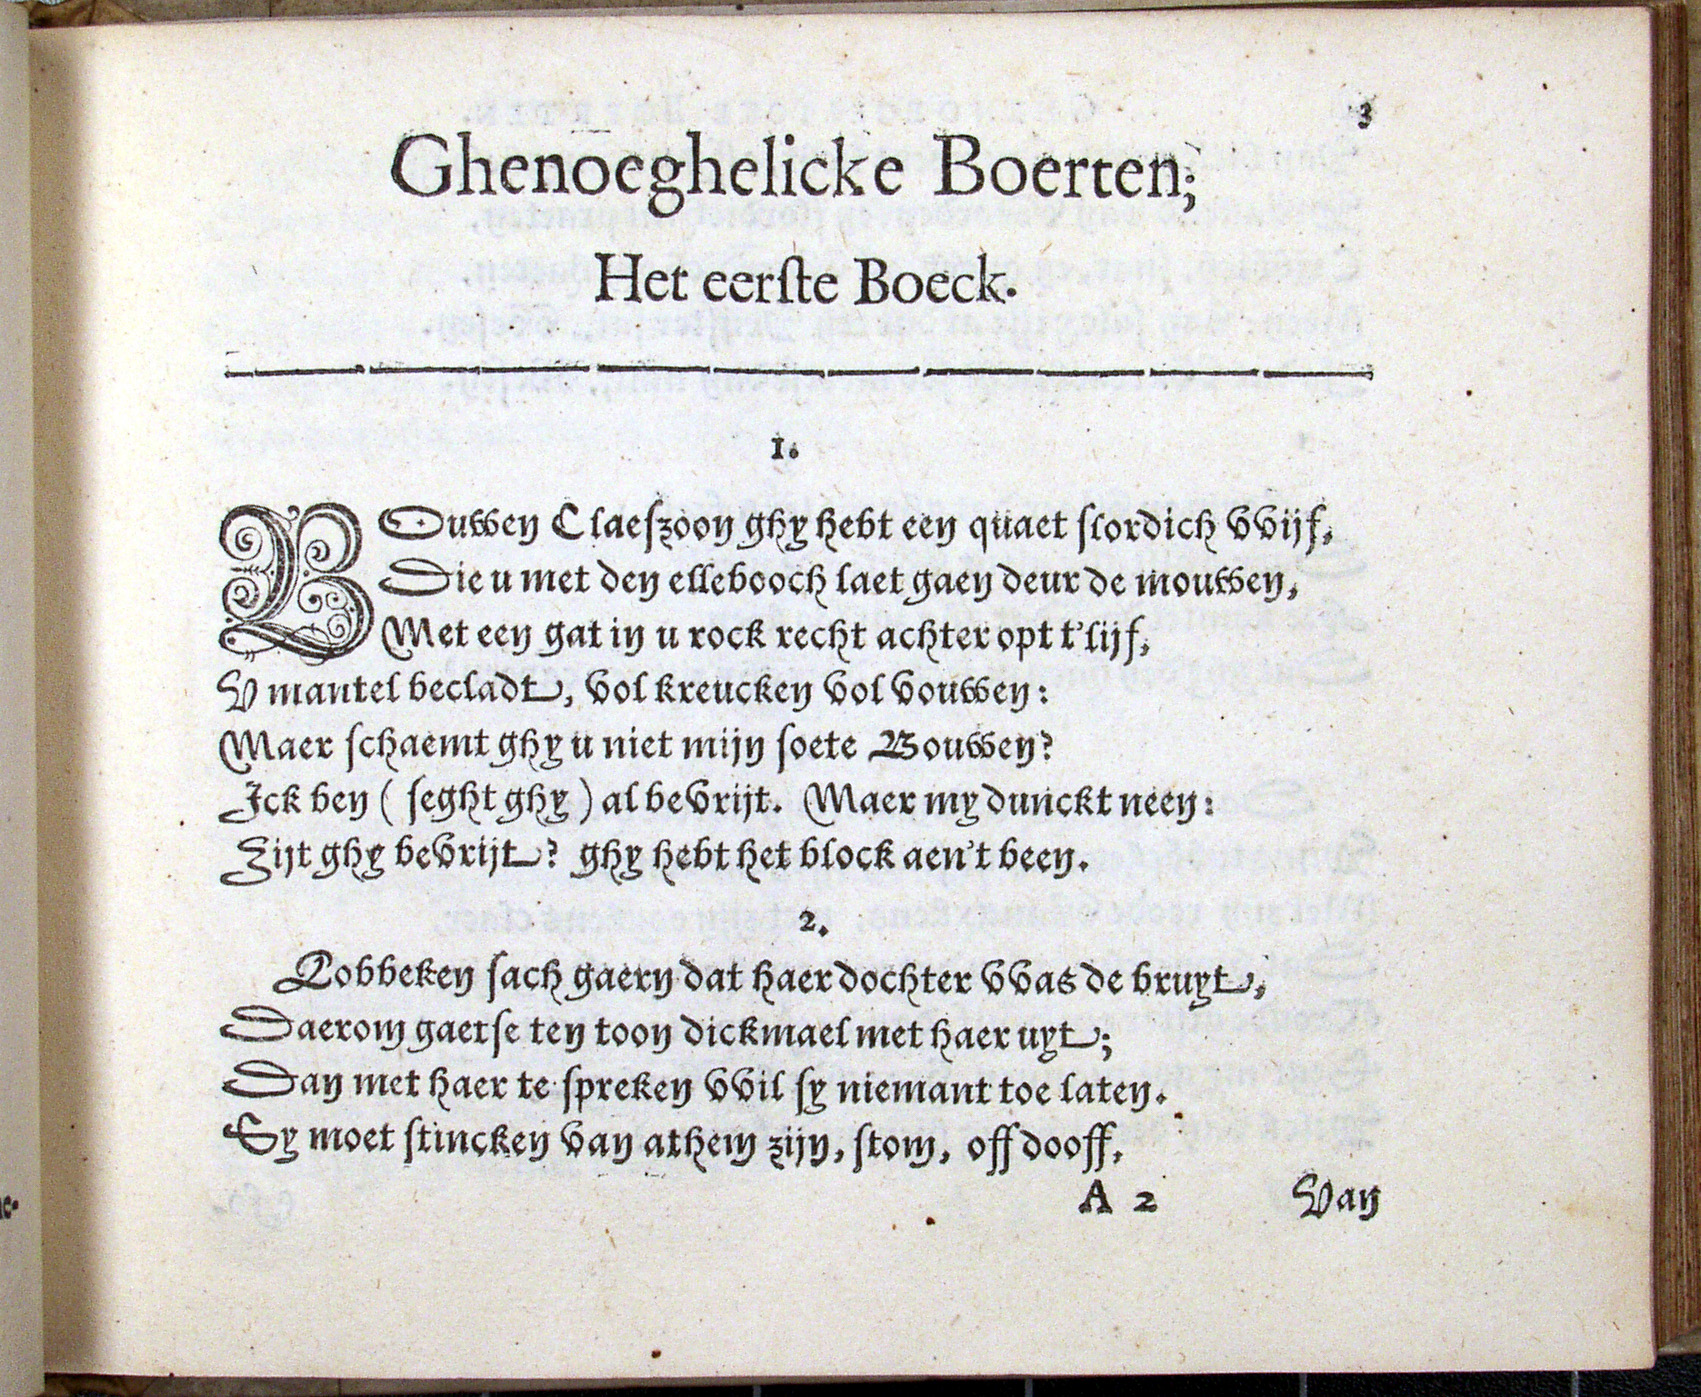 3
Ghenoeghelicke Boerten;
Het eerſte Boeck.
1.
BOuwen Claeſzoon ghy hebt een quaet ſlordich VVijf,
Die u met den ellebooch laet gaen deur de mouwen,
Met een gat in u rock recht achter opt t'lijf,
V mantel becladt, vol kreucken vol vouwen:
Maer ſchaemt ghy u niet mijn ſoete Bouwen?
Ick ben ( ſeght ghy ) al bevrijt. Maer my dunckt neen:
Zijt ghy bevrijt? ghy hebt het block aen't been.
2.
Robbeken ſach gaern dat haer dochter VVas de bruyt,
Daerom gaetſe ten toon dickmael met haer uyt;
Dan met haer te ſpreken VVil ſy niemant toe laten.
Sy moet ſtincken van athem zijn, ſtom, off dooff,
A 2 Van